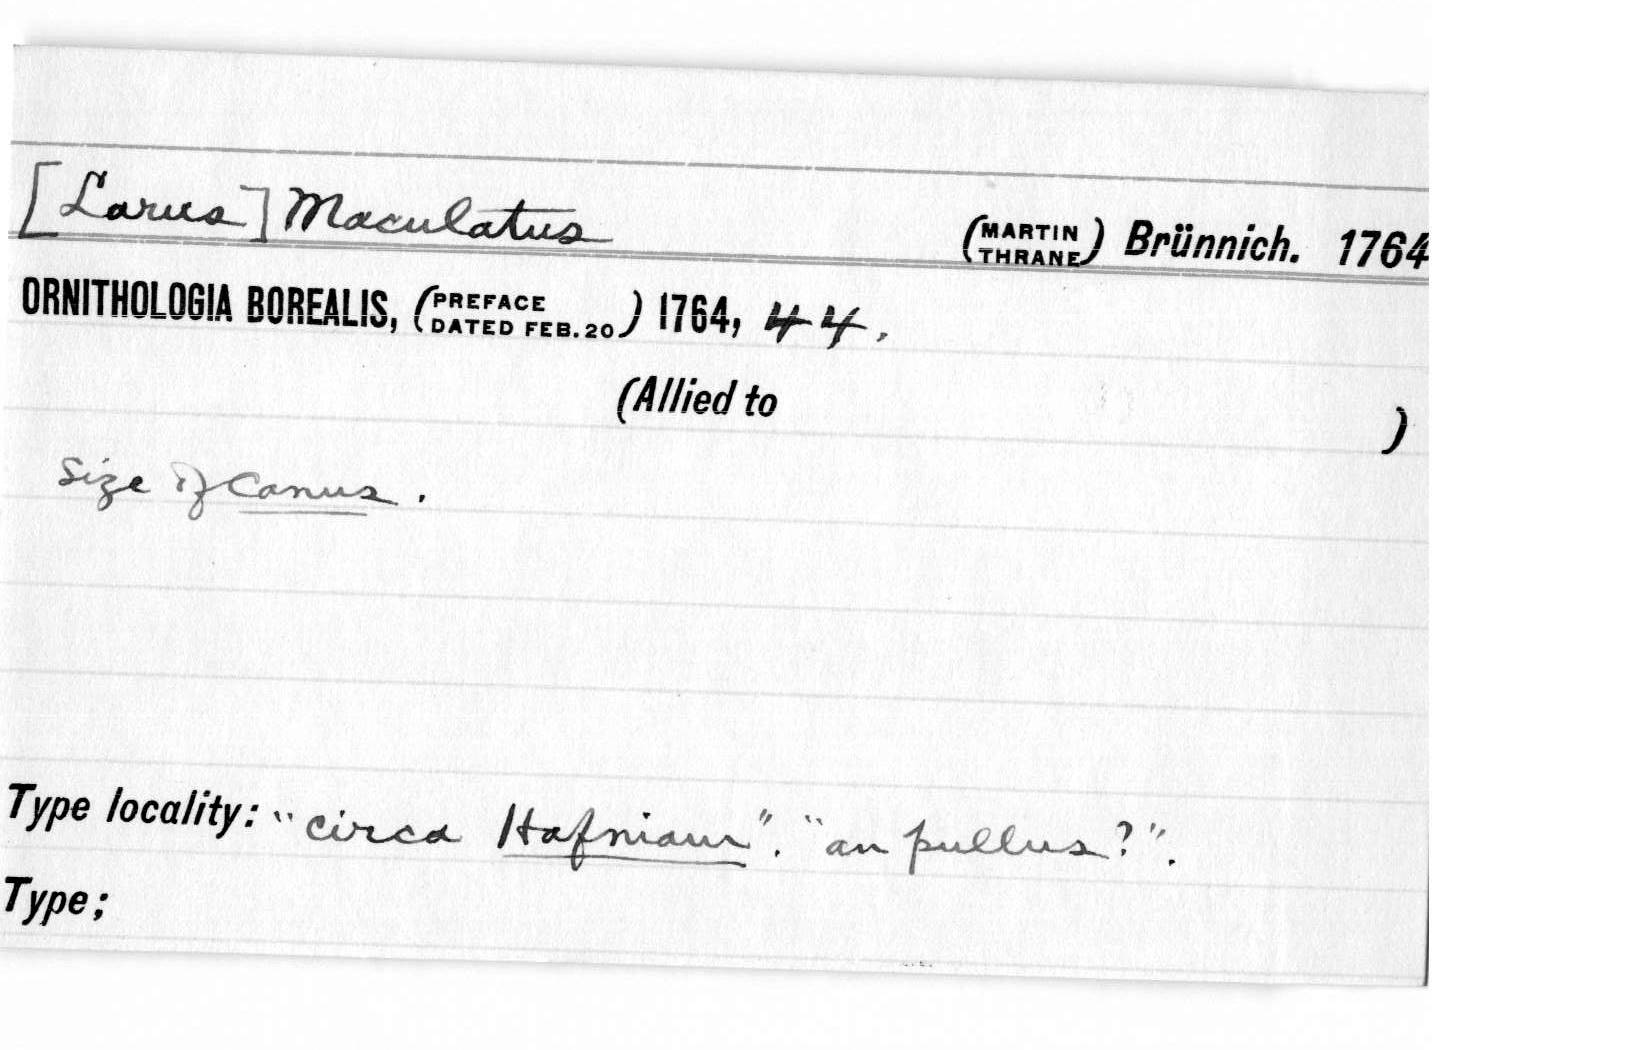 [Larus] Maculatus (MARTIN THRANE) Brünnich. 1764
ORNITHOLOGIA BOREALIS, (PREFACE DATED FEB. 20) 1764, 44.
(Allied to )
Size of Canus.
Type locality: "circa Hafniam". "an pullus?".
Type;